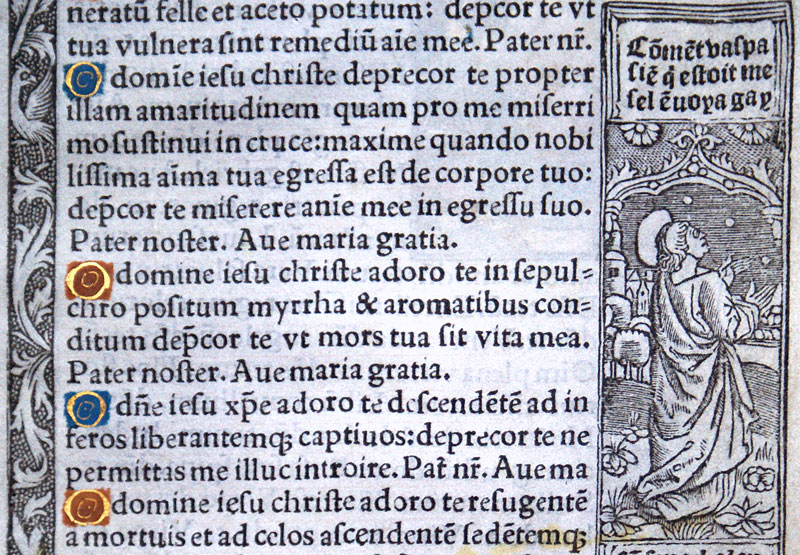 neratū felle et aceto potatum: depcor te vt
tua vulnera ſint remediū aīe mee. Pater nr̄.
O domīe ieſu chriſte deprecor te propter
illam amaritudinem quam pro me miſerri
mo ſuſtinui in cruce: maxime quando nobi
liſſima aīma tua egreſſa eſt de corpore tuo:
dep̄cor te miſerere anīe mee in egreſſu ſuo.
Pater noſter. Aue maria gratia.
O domine ieſu chriſte adoro te in ſepul=
chro poſitum myrrha & aromatibus con=
ditum dep̄cor te vt mors tua ſit vita mea.
Pater noſter. Aue maria gratia.
O dn̄e ieſu xp̄e adoro te deſcendētē ad in
feros liberantemq; captiuos: deprecor te ne
permittas me illuc introire. Pat̄ nr̄. Aue ma
O domine ieſu chriſte adoro te reſugentē
a mortuis et ad celos aſcendentē ſedētemq;
Cōmēt vaſpa
ſiē q̄ eſtoit me
ſel ēuoya gay